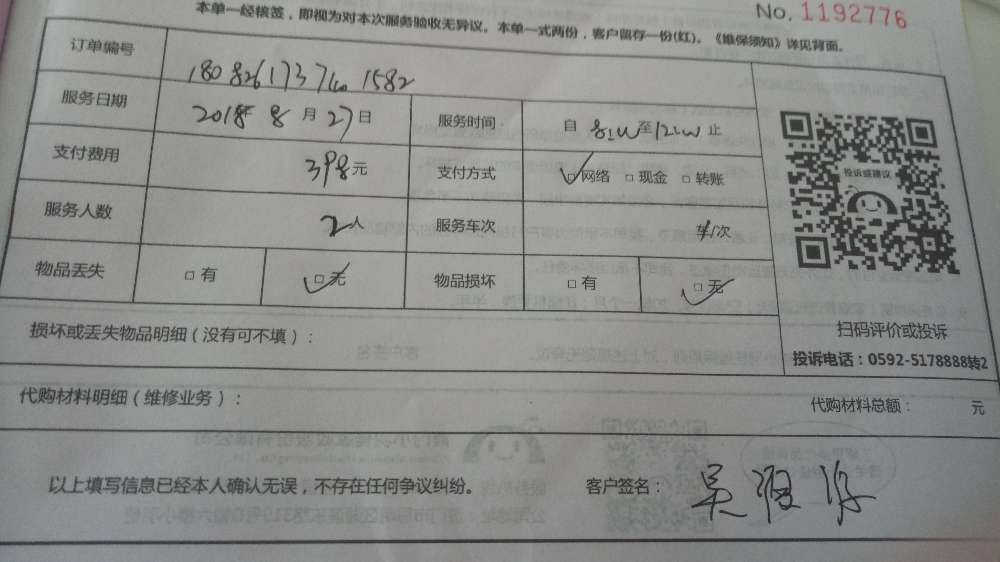 本单一经核签，即视为对本次服务验收无异议。本单一式两份，客户留存一份(红)。《维保须知》详见背面。
No. 1192776
订单编号 180826173740 1582
服务日期 2018年 8 月 27 日 服务时间 自 至 止
支付费用 398 元 支付方式 ☑网络 □ 现金 □ 转账
服务人数 2 人 服务车次 车/次
物品丢失 □ 有 ☑无 物品损坏 □ 有 ☑无
投诉或建议
扫码评价或投诉
投诉电话：0592-5178888转2
损坏或丢失物品明细（没有可不填）：
代购材料明细（维修业务）：
代购材料总额： 元
以上填写信息已经本人确认无误，不存在任何争议纠纷。
客户签名： 吴